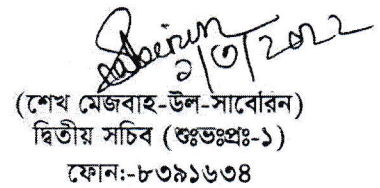 ১/৩/২০২২
(শেখ মেজবাহ-উল-সাবেরিন)
দ্বিতীয় সচিব (শুঃভঃপ্রঃ-১)
ফোন:-৮৩৯১৬৩৪